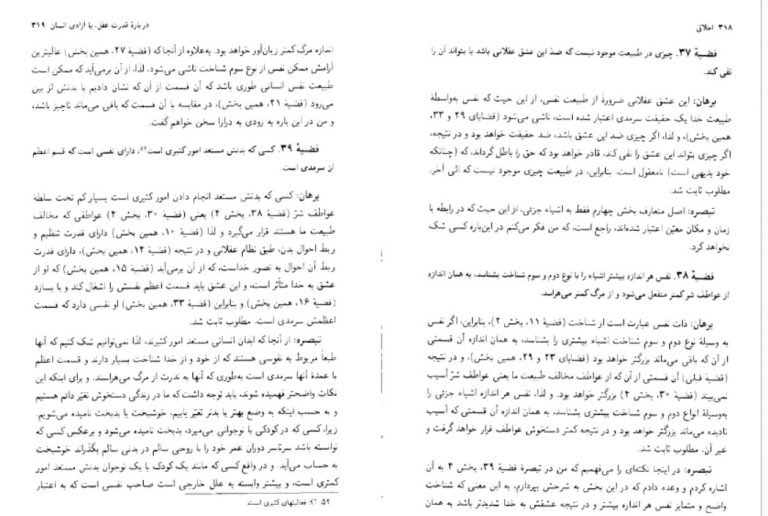 ۳۱۸ اخلاق
قضیهٔ ۳۷. چیزی در طبیعت موجود نیست که ضد این عشق عقلانی باشد یا بتواند آن را
نفی کند.
برهان: این عشق عقلانی ضرورةً از طبیعت نفس، از این حیث که نفس به‌واسطهٔ
طبیعت خدا یک حقیقت سرمدی اعتبار شده است، ناشی می‌شود (قضایای ۲۹ و ۳۳،
همین بخش)، و لذا، اگر چیزی ضد این عشق باشد، ضد حقیقت خواهد بود و در نتیجه،
اگر چیزی بتواند این عشق را نفی کند، قادر خواهد بود که حق را باطل گرداند، که (چنانکه
خود بدیهی است) نامعقول است. بنابراین، در طبیعت چیزی موجود نیست که الی آخر.
مطلوب ثابت شد.
تبصره: اصل متعارف بخش چهارم فقط به اشیاء جزئی، از این حیث که در رابطه با
زمان و مکان معیّن اعتبار شده‌اند، راجع است، که من فکر می‌کنم در این‌باره کسی شک
نخواهد کرد.
قضیهٔ ۳۸. نفس هر اندازه بیشتر اشیاء را با نوع دوم و سوم شناخت بشناسد، به همان اندازه
از عواطف شر کمتر منفعل می‌شود و از مرگ کمتر می‌هراسد.
برهان: ذات نفس عبارت است از شناخت (قضیهٔ ۱۱، بخش ۲)، بنابراین، اگر نفس
به وسیلهٔ نوع دوم و سوم شناخت اشیاء بیشتری را بشناسد، به همان اندازه آن قسمتی
از آن که باقی می‌ماند بزرگتر خواهد بود (قضایای ۲۳ و ۲۹، همین بخش)، و در نتیجه
(قضیهٔ قبلی) آن قسمتی از آن که از عواطف مخالف طبیعت ما یعنی عواطف شرّ آسیب
نمی‌بیند (قضیهٔ ۳۰، بخش ۴) بزرگتر خواهد بود. و لذا، نفس هر اندازه اشیاء جزئی را
به‌وسیلهٔ انواع دوم و سوم شناخت بیشتری بشناسد، به همان اندازه آن قسمتی که آسیب
نادیده می‌ماند بزرگتر خواهد بود و در نتیجه کمتر دستخوش عواطف قرار خواهد گرفت و
غیر آن. مطلوب ثابت شد.
تبصره: در اینجا نکته‌ای را می‌فهمیم که من در تبصرهٔ قضیهٔ ۳۹، بخش ۴ به آن
اشاره کردم و وعده دادم که در این بخش به شرحش بپردازم، به این معنی که شناخت
واضح و متمایز نفس هر اندازه بیشتر و در نتیجه عشقش به خدا شدیدتر باشد به همان
دربارهٔ قدرت عقل، یا آزادی انسان ۳۱۹
اندازه مرگ کمتر زیان‌آور خواهد بود. به‌علاوه از آنجا که (قضیهٔ ۲۷، همین بخش) عالیترین
آرامش ممکن نفس از نوع سوم شناخت ناشی می‌شود، لذا، از آن برمی‌آید که ممکن است
طبیعت نفس انسانی طوری باشد که آن قسمت از آن که نشان دادیم با بدنش از بین
می‌رود (قضیهٔ ۲۱، همین بخش)، در مقایسه با آن قسمت که باقی می‌ماند ناچیز باشد،
و من در این باره به زودی به درازا سخن خواهم گفت.
قضیهٔ ۳۹. کسی که بدنش مستعد امور کثیری است۵۲، دارای نفسی است که قسم اعظم
آن سرمدی است.
برهان: کسی که بدنش مستعد انجام دادن امور کثیری است بسیار کم تحت سلطهٔ
عواطف شرّ (قضیهٔ ۳۸، بخش ۴) یعنی (قضیهٔ ۳۰، بخش ۴) عواطفی که مخالف
طبیعت ما هستند قرار می‌گیرد و لذا (قضیهٔ ۱۰، همین بخش) دارای قدرت تنظیم و
ربط احوال بدن، طبق نظام عقلانی و در نتیجه (قضیهٔ ۱۴، همین بخش)، دارای قدرت
ربط آن احوال به تصور خداست، که از آن برمی‌آید (قضیهٔ ۱۵، همین بخش) که او از
عشق به خدا متأثر است، و این عشق باید قسمت اعظم نفسش را اشغال کند و یا بسازد
(قضیهٔ ۱۶، همین بخش) و بنابراین (قضیهٔ ۳۳، همین بخش) او نفسی دارد که قسمت
اعظمش سرمدی است. مطلوب ثابت شد.
تبصره: از آنجا که ابدان انسانی مستعد امور کثیرند، لذا نمی‌توانیم شک کنیم که آنها
طبعاً مربوط به نفوسی هستند که از خود و از خدا شناخت بسیار دارند و قسمت اعظم
یا عمدهٔ آنها سرمدی است به‌طوری که آنها به ندرت از مرگ می‌هراسند. و برای اینکه این
نکات واضحتر فهمیده شوند، باید توجه داشت که ما در زندگی دستخوش تغیّر دائم هستیم
و به حسب اینکه به وضع بهتر یا بدتر تغیّر یابیم، خوشبخت یا بدبخت نامیده می‌شویم.
زیرا، کسی که در کودکی یا نوجوانی می‌میرد، بدبخت نامیده می‌شود و برعکس کسی که
توانسته باشد سرتاسر دوران عمر خود را با روحی سالم در بدنی سالم بگذراند خوشبخت
به حساب می‌آید. و در واقع کسی که مانند یک کودک یا یک نوجوان بدنش مستعد امور
کمتری است، و بیشتر وابسته به علل خارجی است صاحب نفسی است که به اعتبار
۵۲. فعالیتهای کثیری است.